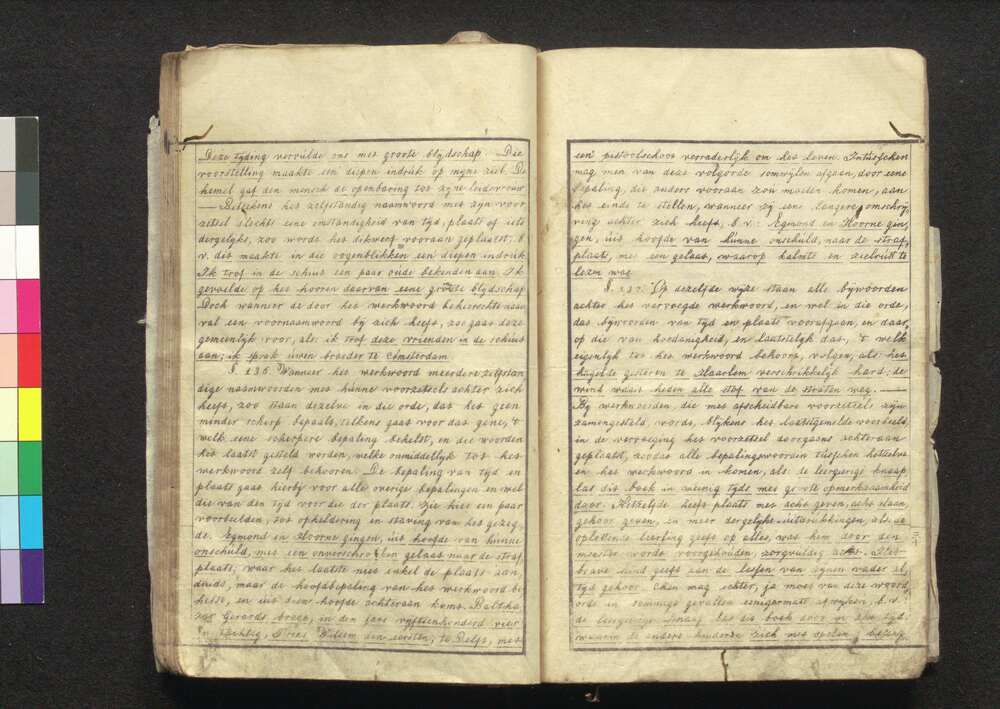 Deze tyding vervulde ons met groote blydschap. Die
voorstelling maakte een diepen indruk op myne ziel. De
hemel gaf den mensch de openbaring tot zyne leidsvrouw
— Beteekent het zelfstandig naamwoord met zyn voor-
zetsel slechts eene omstandigheid van tyd, plaats of iets
dergelyks, zoo wordt het dikwerf vooraan geplaatst: b.
v. dit maakte in die oogenblikken een diepen indruk
Ik trof in de schuit een paar oude bekenden aan. Ik
gevoelde op het hooren daarvan eene groote blydschap
Doch wanneer de door het werkwoord beheerschte naam
val een voornaamwoord bij zich heeft, zoo gaat deze
gemeenlyk voor, als: ik trof deze vrienden in de schuit
aan; ik sprak uwen broeder te Amsterdam.
§. 136. Wanneer het werkwoord meerdere zelfstan
dige naamwoorden met hunne voorzetsels achter zich
heeft, zoo staan dezelve in die orde, dat het geen
minder scherp bepaalt, telkens gaat voor dat gene, 't
welk eene scherpere bepaling behelst, en die woorden
het laatst gesteld worden, welke onmiddelyk tot het
werkwoord zelf behooren. De bepaling van tyd en
plaats gaat hierby voor alle overige bepalingen en wel
die van den tyd voor die der plaats. Zie hier een paar
voorbeelden, tot opheldering en staving van het gezeg-
de. Egmond en Hoorne gingen, uit hoofde van hunne
onschuld, met een onverschrokken gelaat naar de straf
plaats; waar het laatste niet enkel de plaats aan
duidt, maar de hoofdbepaling van het werkwoord be
helst, en uit dien hoofde achteraan komt. Baltha
zar Gerards broeg, in den jare vyftienhonderd vier
en tachtig, Prins Willem den eersten, te Delft, met
een pistoolschoot verraderlyk om het leven. Intusschen
mag men van deze volgorde somwylen afgaan, door eene
bepaling, die anders vooraan zou moeten komen, aan
het einde te stellen, wanneer zy eene langere omschry
ving achter zich heeft, b. v.: Egmond en Hoorne gin
gen, uit hoofde van hunne onschuld, naar de straf
plaats, met een gelaat, waarop kalmte en zielrust te
lezen was.
§. 137. Op dezelfde wyze staan alle bywoorden
achter het vervoegde werkwoord, en wel in die orde,
dat bywoorden van tyd en plaats voorafgaan, en daar
op die van hoedanigheid, en laatstelyk dat, 't welk
eigenlyk tot het werkwoord behoort, volgen, als: het
hagelde gisteren te Haarlem verschrikkelyk hard; de
wind waait heden alle stof van de straten weg. —
By werkwoorden die met afscheidbare voorzetsels zyn
zamengesteld wordt, blykens het laatstgemelde voorbeeld,
in de vervoeging het voorzetsel doorgaans achteraan
geplaatst, zoodat alle bepalingswoorden tusschen hetzelve
en het werkwoord in komen, als: de leergierige knaap
las dit boek in weinig tyds met groote opmerkzaamheid
door. Hetzelfde heeft plaats met acht geven, acht slaan,
gehoor geven, en meer dergelyke uitdrukkingen, als: de
oplettende leerling geeft op alles, wat hem door den
meester wordt voorgehouden, zorgvuldig acht. Het
brave kind geeft aan de lessen van zynen vader al
tyd gehoor. Men mag echter, ja moet van deze woord
orde in sommige gevallen eenigermate afwyken, b. v.
de leergierige knaap las dit boek door in den tyd,
waarin de andere kinderen zich met spelen bezig